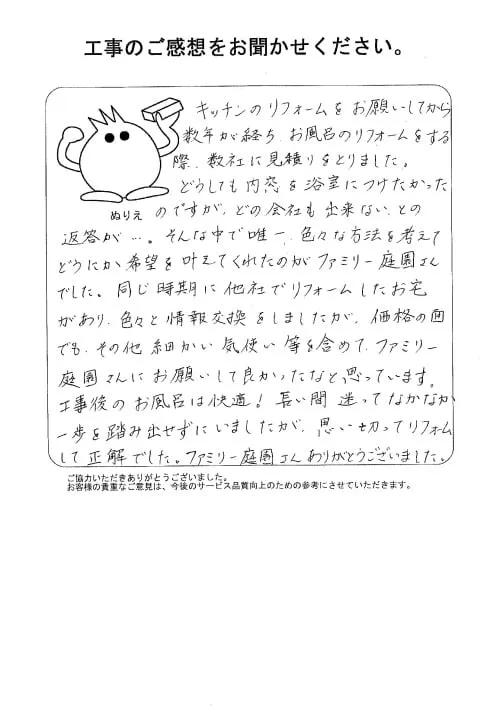 工事のご感想をお聞かせください。
キッチンのリフォームをお願いしてから
数年が経ち、お風呂のリフォームをする
際、数社に見積りをとりました。
どうしても内窓を浴室につけたかった
ぬりえ
のですが、どの会社も出来ないとの
返答が…。そんな中で唯一、色々な方法を考えて
どうにか希望を叶えてくれたのがファミリー庭園さん
でした。同じ時期に他社でリフォームしたお宅
があり、色々と情報交換をしましたが、価格の面
でも、その他細かい気使い等を含めて、ファミリー
庭園さんにお願いして良かったなと思っています。
工事後のお風呂は快適！長い間迷ってなかなか
一歩を踏み出せずにいましたが、思い切ってリフォーム
して正解でした。ファミリー庭園さんありがとうございました。
ご協力いただきありがとうございました。
お客様の貴重なご意見は、今後のサービス品質向上のための参考にさせていただきます。